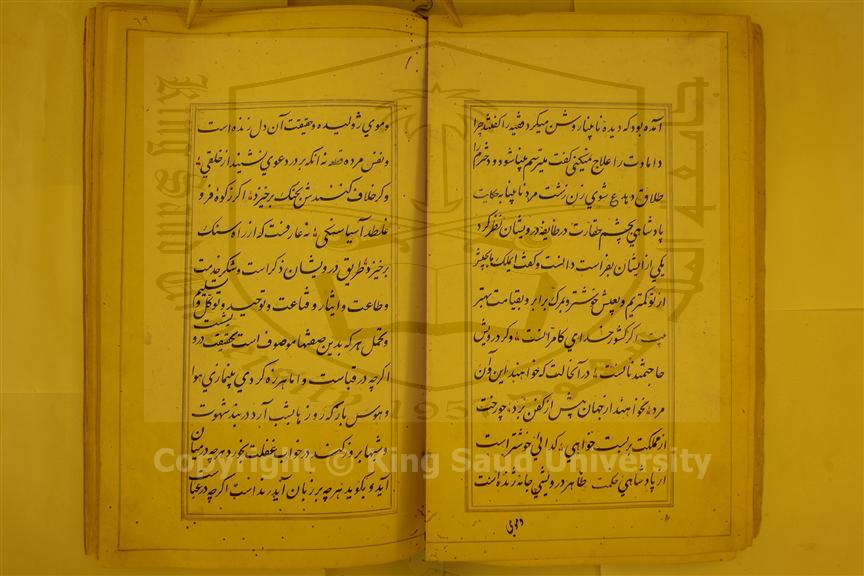 آمده بود که دیده نابینا روشن میکرد فقیه را گفتند چرا
دامادت را علاج نمیکنی گفت میترسم بینا شود و دخترم را
طلاق دهد ع شوي زن زشت مرد نابینا به حکایت
پادشاهي بچشم حقارت در طایفه درویشان نظر کرد
یکي از ایشان بفراست دانست و گفت ای ملک ما بجیش
از تو کمتریم و بعیش خوشتر و بمرگ برابر و بقیامت بهتر
بیت اگر کشور خداي کامرانست و گر درویش
حاجتمند نانست در آن حالت که خواهند این و آن
مرد نخواهند از جهان بیش از کفن برد چو رخت
از مملکت بر بست خواهي گدائي خوشتر است
از پادشاهي حکمت ظاهر درویشي جامه ژنده است
وموي
وموي ژولیده و حقیقت آن دل زنده است
و نفس مرده قطعه نه آنکه بر در دعوي نشیند از خلقي
و گر خلاف کنندش بجنگ برخیزد اگر ز کوه فرو
غلطد آسیا سنگي نه عارفست که از راه سنگ
برخیزد طریق درویشان ذکر است و شکر خدمت
و طاعت و ایثار و قناعت و توحید و توکل و تسلیم
و تحمل هر که بدین صفتها موصوف است بحقیقت درویشست
اگر چه در قباست و اما هرزه گردي بینمازي هوا
و هوس باز که روزها بشب آرد در بند شهوت
و شبها بروز کند در خواب غفلت بخورد هر چه در میان
آید و بگوید هر چه بر زبان آید رندا است اگر چه در عباست
٦٩
Copyright © King Saud University
King Saud University
1957